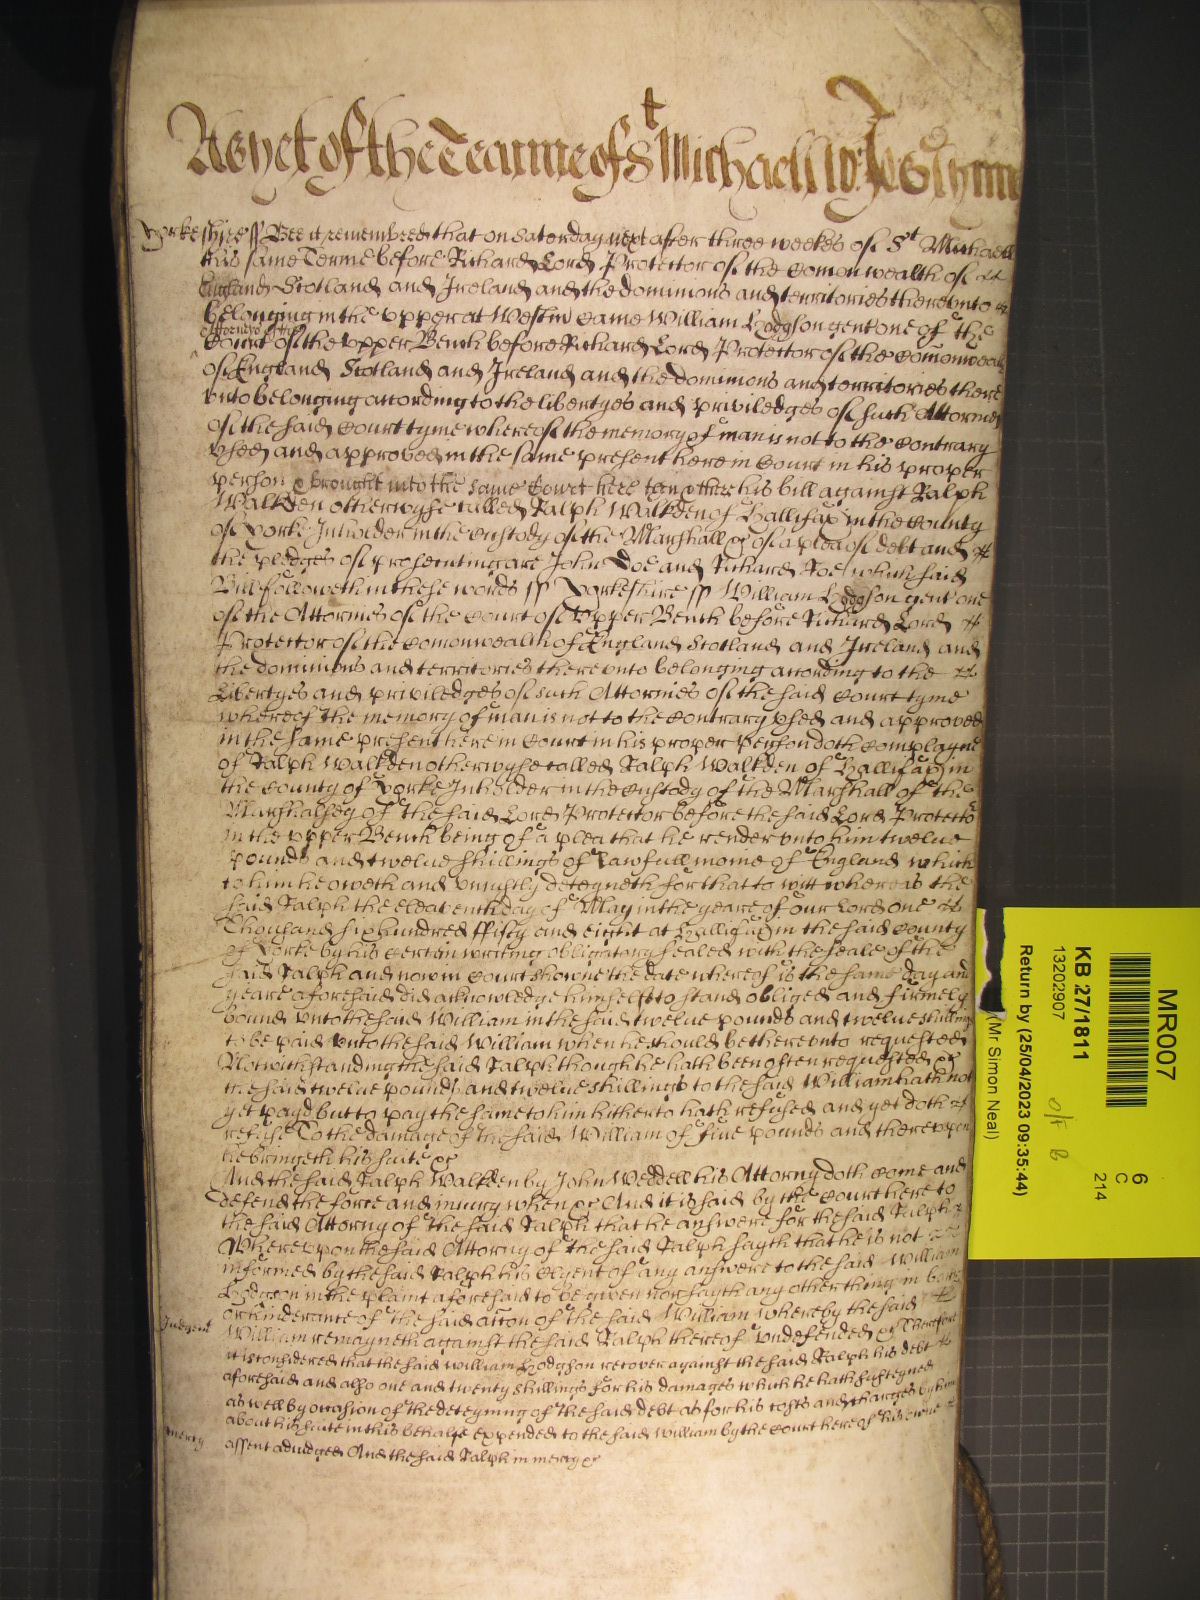 As yet of the Tearme of St Michaell W: Joslynne
Yorkeshire ss Bee it remembred that on Saturday next after three weekes of St Michaell
this same Terme before Richard Lord Protector of the Comonwealth of
England Scotland and Ireland and the dominions and territories therevnto
belonging in the vpper at Westm Came William Hodgson gent one of the
Attorneys of the
Court of the vpper Bench before Richard Lord Protector of the Comonwealth
of England Scotland and Ireland and the dominions and territories there
vnto belonging according to the libertyes and priviledges of such Attornies
of the said Court tyme whereof the memory of man is not to the Contrary
vsed and approved in the same present here in Court in his proper
person & brought into the same Court here then & there his bill against Ralph
Walkden otherwyse called Ralph Walkden of Hallifax in the County
of Yorke Inholder in the Custody of the Marshall &c of a plea of debt and
the pledges of prosecuting are John Doe and Richard Roe which said
Bill followeth in these words ss Yorkeshire ss William Hodgson gent one
of the Attornies of the Court of Vpper Bench before Richard Lord
Protector of the Comonwealth of England Scotland and Ireland and
the dominions and territories there vnto belonging according to the
Libertyes and priviledges of such Attornies of the said Court tyme
whereof the memory of man is not to the Contrary vsed and approved
in the same present here in Court in his proper person doth Complayne
of Ralph Walkden otherwyse called Ralph Walkden of Hallifax in
the County of Yorke Inholder in the Custody of the Marshall of the
Marshalsey of the said Lord Protector before the said Lord Protector
in the vpper Bench being of a plea that he render vnto him twelve
pounds and twelve shillings of lawfull mone of England which
to him he oweth and vniustly deteyneth for that to witt whereas the
said Ralph the eleaventh day of May in the yeare of our Lord one
Thousand six hundred ffifty and eight at Hallifax in the said County
of Yorke by his certein writing obligatory sealed with the seale of the
said Ralph and now in Court showne the date whereof is the same day and
yeare aforesaid did acknowledge himselfe to stand obliged and firmely
bound vnto the said William in the said twelve pounds and twelve shillings
to be paid vnto the said William when he should be therevnto requested
Notwithstanding the said Ralph though he hath been often requested &c
the said twelve pounds and twelve shillings to the said William hath not
yet payd but to pay the same to him hitherto hath refused and yet doth
refuse To the damage of the said William of five pounds and therevpon
he bringeth his suite &c
And the said Ralph Walkden by John Weddell his Attorny doth Come and
defend the force and iniury when &c And it is said by the Court here to
the said Attorny of the said Ralph that he answere for the said Ralph
Wherevpon the said Attorny of the said Ralph sayth that he is not
informed by the said Ralph his Clyent of any answere to the said William
Hodgson in the plaint aforesaid to be given nor sayth any other thing in barr
or hinderance of the said accon of the said William whereby the said
Judgent
William remayneth against the said Ralph thereof vndefended &c Therefore
it is considered that the said William Hodgson recover against the said Ralph his debt
aforesaid and also one and twenty shillings for his damages which he hath susteyned
as well by occasion of the deteyning of the said debt as for his costs and charges by him
about his suite in this behalfe expended to the said William by the Court here of his owne
mercy
assent adiudged And the said Ralph in mercy &c
MR007
KB 27/1811
13202907
6
C
214
(Mr Simon Neal)
Return by (25/04/2023 09:35:44)